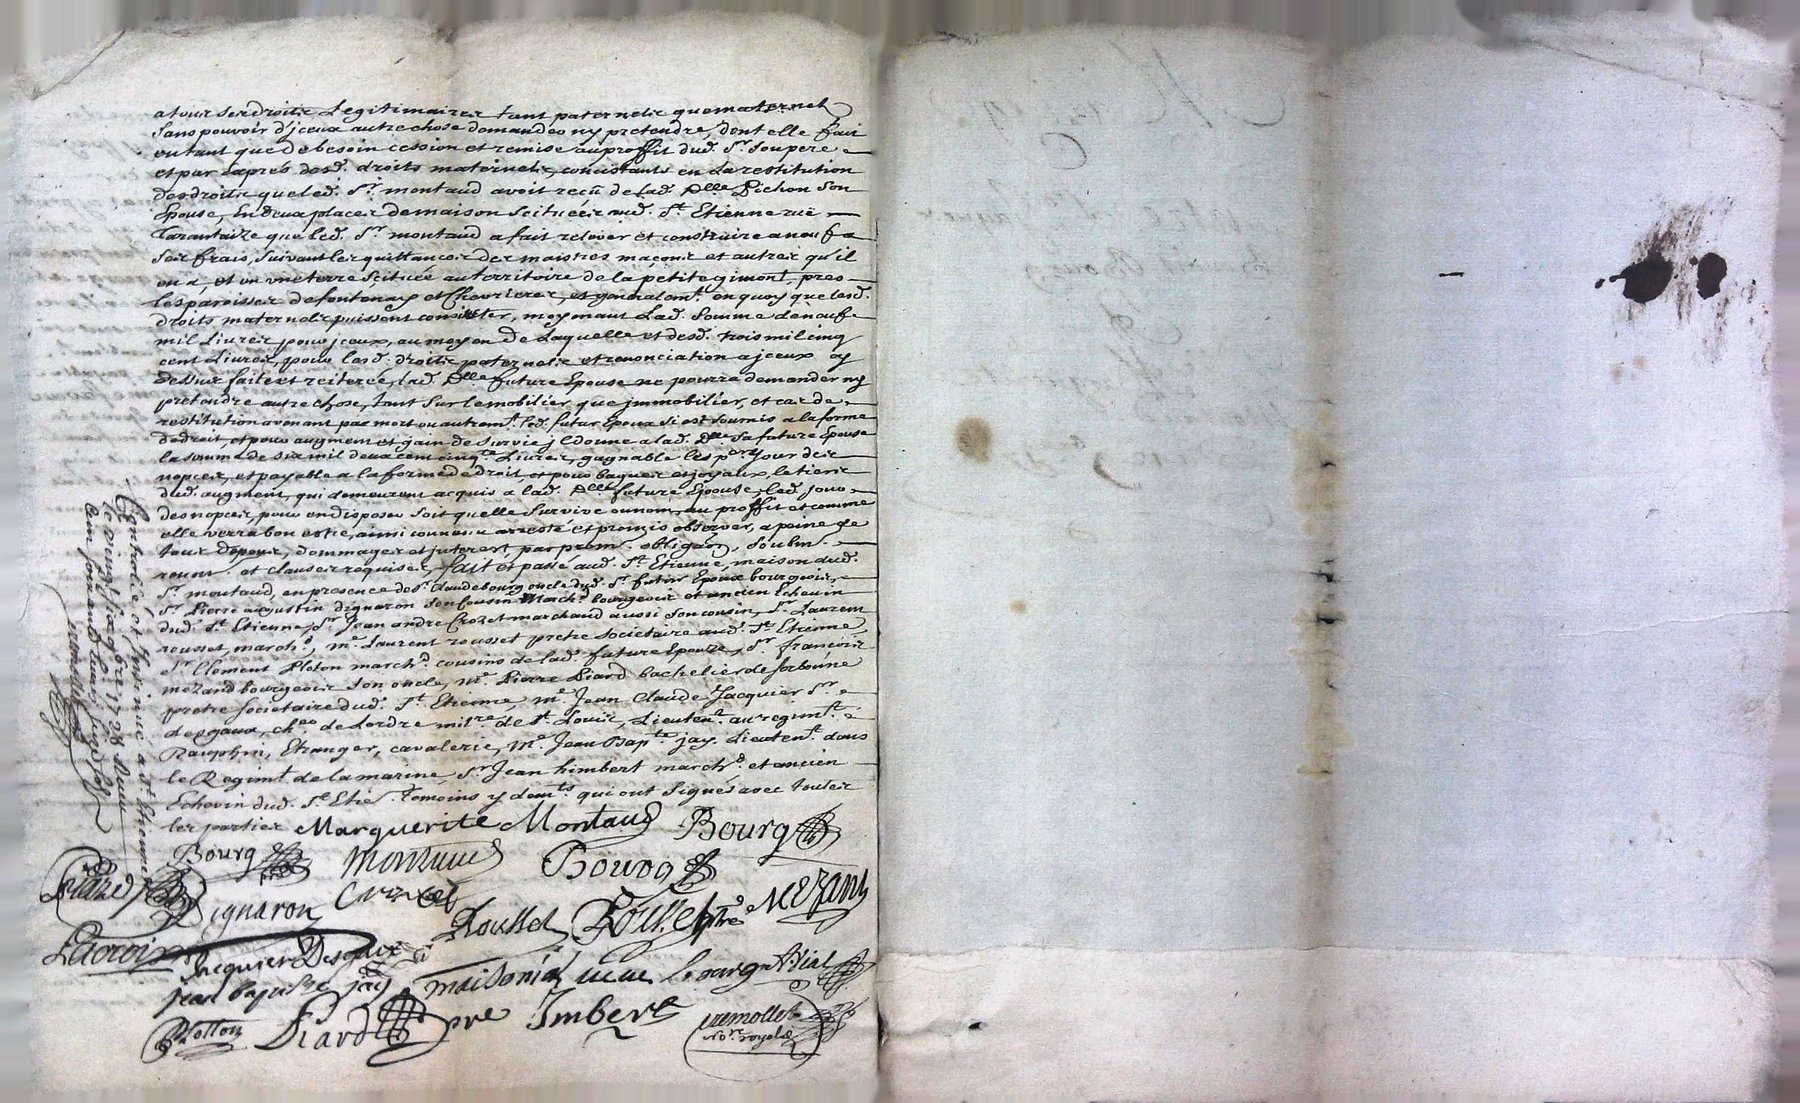 a tous ses droits Legitimaires tant paternels que maternels
sans pouvoir d'jceux autre chose demander ny pretendre, dont elle fait
en tant que de besoin cession et remise au proffit dud. Sr. Son pere
et par Laprés desd. droits maternels, concistants en La restitution
des droits que led. Sr. montaud avoit reçû de lad. Dlle. Pichon Son
Epouse, En deux places de maison Scituées aud. St. Etienne ruë
Tarantaize que led. Sr. montaud a fait relever et construire a neuf a
Ses frais, Suivant les quittances des maistres maçons et autres qu'il
en a, et en une terre Scituée au territoire de la petite gimont, pres
les paroisses de fontenay et Chevrieres, et generalemt. en quoy que lesd.
droits maternels puissent consister, moyenant Lad. Somme de neuf
mil Livres pour jceux, au moyen de Laquelle et desd. trois mil cinq
cent Livres, pour lesd. droits paternels et renonciation a jceux cy
dessus faite et reiterée, lad. Dlle. future Epouse ne pourra demander ny
pretendre autre chose, tant Sur le mobilier que jmmobilier, et cas de
restitution avenant par mort ou autremt. led. futur Epoux S'est Soumis a la forme
de droit, et pour augment et gain de Survie jl donne a lad. Dlle. Sa future Epouse
la somme de six mil deux cent cinqte. Livres, gagnable les pers. jour des
nopces, et payable a la forme de droit, et pour bagues et joyaux, le tiers
dud. augment, qui demeurent acquis a lad. Dlle. future Epouse, led. jour
des nopces, pour en disposer Soit quelle Survive ou non, au proffit et comme
elle verra bon estre, ainsi convenu arresté et promis observer, a peine de
tous depens, dommages et jnterest, par prom. obligaon. Soubm.
renon. et clauses requises, fait et passé aud. St. Etienne, maison dud.
Sr. montaud, en presence de Sr. Claude bourg oncle dud. Sr. futur Epoux bourgeois,
Sr. Pierre augustin dignaron Son Cousin March. bourgeois et ancien Echevin
dud. St. Etienne, Sr. Jean andre Crozet marchand aussi Son cousin, Sr. Laurent
rousset, marchd., Me. Laurent rousset pretre societaire aud. St. Etienne,
Sr. Clement Ploton marchd. cousins de lad. future Epouze, Sr. françois
mezand bourgeois Son oncle, Me. Pierre Piard bachelier de sorbonne
pretre Societaire dud. St. Etienne, Me. Jean Claude Jacquier Sr.
desgaux, cher. de Lordre milre. de St. Louis, Lieutent. au regimt.
Dauphin, Etranger, cavalerie, Me. Jean Bapte. jay, Lieutent. dans
le Regimt. de la marine, Sr. Jean himbert marchd. et ancien
Echevin dud. St. Etie. temoins y demts. qui ont Signés avec toutes
les parties Marguerite Montaud Bourg
Bourg Montaud Bourg
Dignaron Crozet
Rousset Rousset ptre Mezand
Lacroix
Jacquier Desgaux
jean baptiste jay
Ploton Piard pre Imbert
not. royal
Controlé et Insinué a St. Etienne
le vingt sixe. 1728